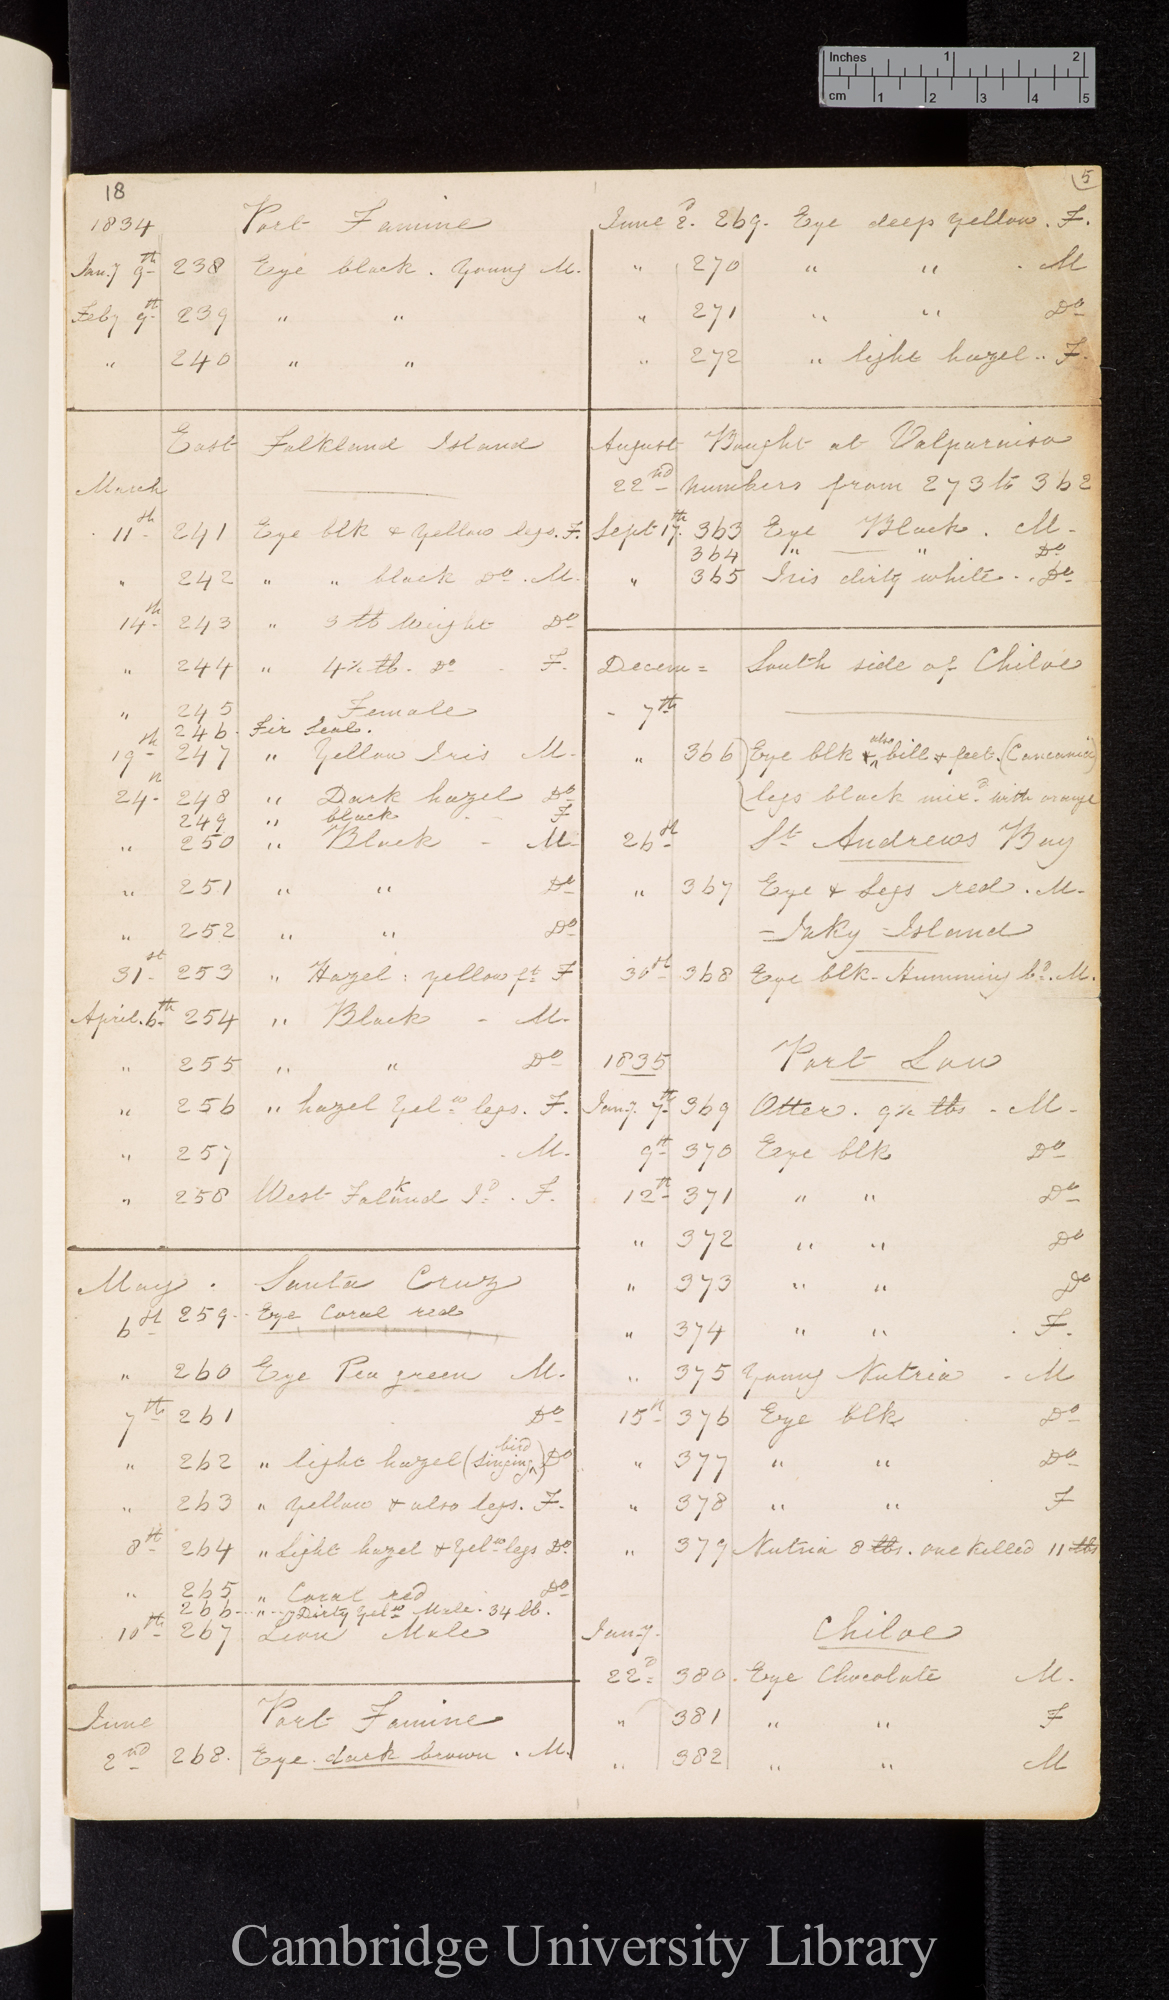 Inches 1 2
cm 1 2 3 4 5
18
5
1834 Port Famine
Jan.y 9th 238 Eye black . Young M.
Feby 9th 239 " "
" 240 " "
East Falkland Island
March
11th 241 Eye blk & yellow legs. F.
" 242 " " black Do . M.
14th 243 " 3 lb Weight Do
" 244 " 4½ lb. Do - F.
" 245 Female
246 Fir Seal.
19th 247 " Yellow Iris M.
24th 248 " Dark hazel Do
249 " black - F
" 250 " Black - M.
" 251 " " Do
" 252 " " Do
31st 253 " Hazel : yellow ft F
April. 6th 254 " Black - M.
" 255 " " Do
" 256 " hazel Yelw legs. F.
" 257 - M.
" 258 West Falkland Id . F.
May . Santa Cruz
6th 259 - Eye Coral red
" 260 Eye Pea green M.
7th 261 Do
" 262 " light hazel (Singing bird) Do
" 263 " yellow & also legs. F.
8th 264 " Light hazel & Yelw legs Do.
" 265 " Coral red Do
266 - " Dirty Yelw Male . 34 lb.
10th 267 Lion Male
June Port Famine
2nd 268. Eye dark brown . M.
June 2d. 269. Eye deep yellow . F.
" 270 " " . M
" 271 " " Do
" 272 " light hazel .. F.
August Bought at Valparaiso
22nd numbers from 273 to 362
Sept 17th. 363 Eye Black . M.
364 " " Do
" 365 Iris dirty white . . Do
Decem = South side of Chiloe
- 7th
" 366 Eye blk & also bill & feet.
legs black mixd. with orange
26th St Andrews Bay
" 367 Eye & Legs red . M.
- Inky - Island
30th 368 Eye blk - Humming bd. M.
1835 Port Low
Jany. 7th 369 Otter . 9½ lbs - M -
9th 370 Eye blk Do
12th 371 " " Do
" 372 " " Do
" 373 " " Do
" 374 " " . F.
" 375 Young Nutria - M
15th 376 Eye blk Do
" 377 " " Do
" 378 " " F
" 379 Nutria 8 lbs. one killed 11 lbs
Jany. Chiloe
22d = 380. Eye Chocolate M.
" 381 " " F
" 382 " " M
Cambridge University Library